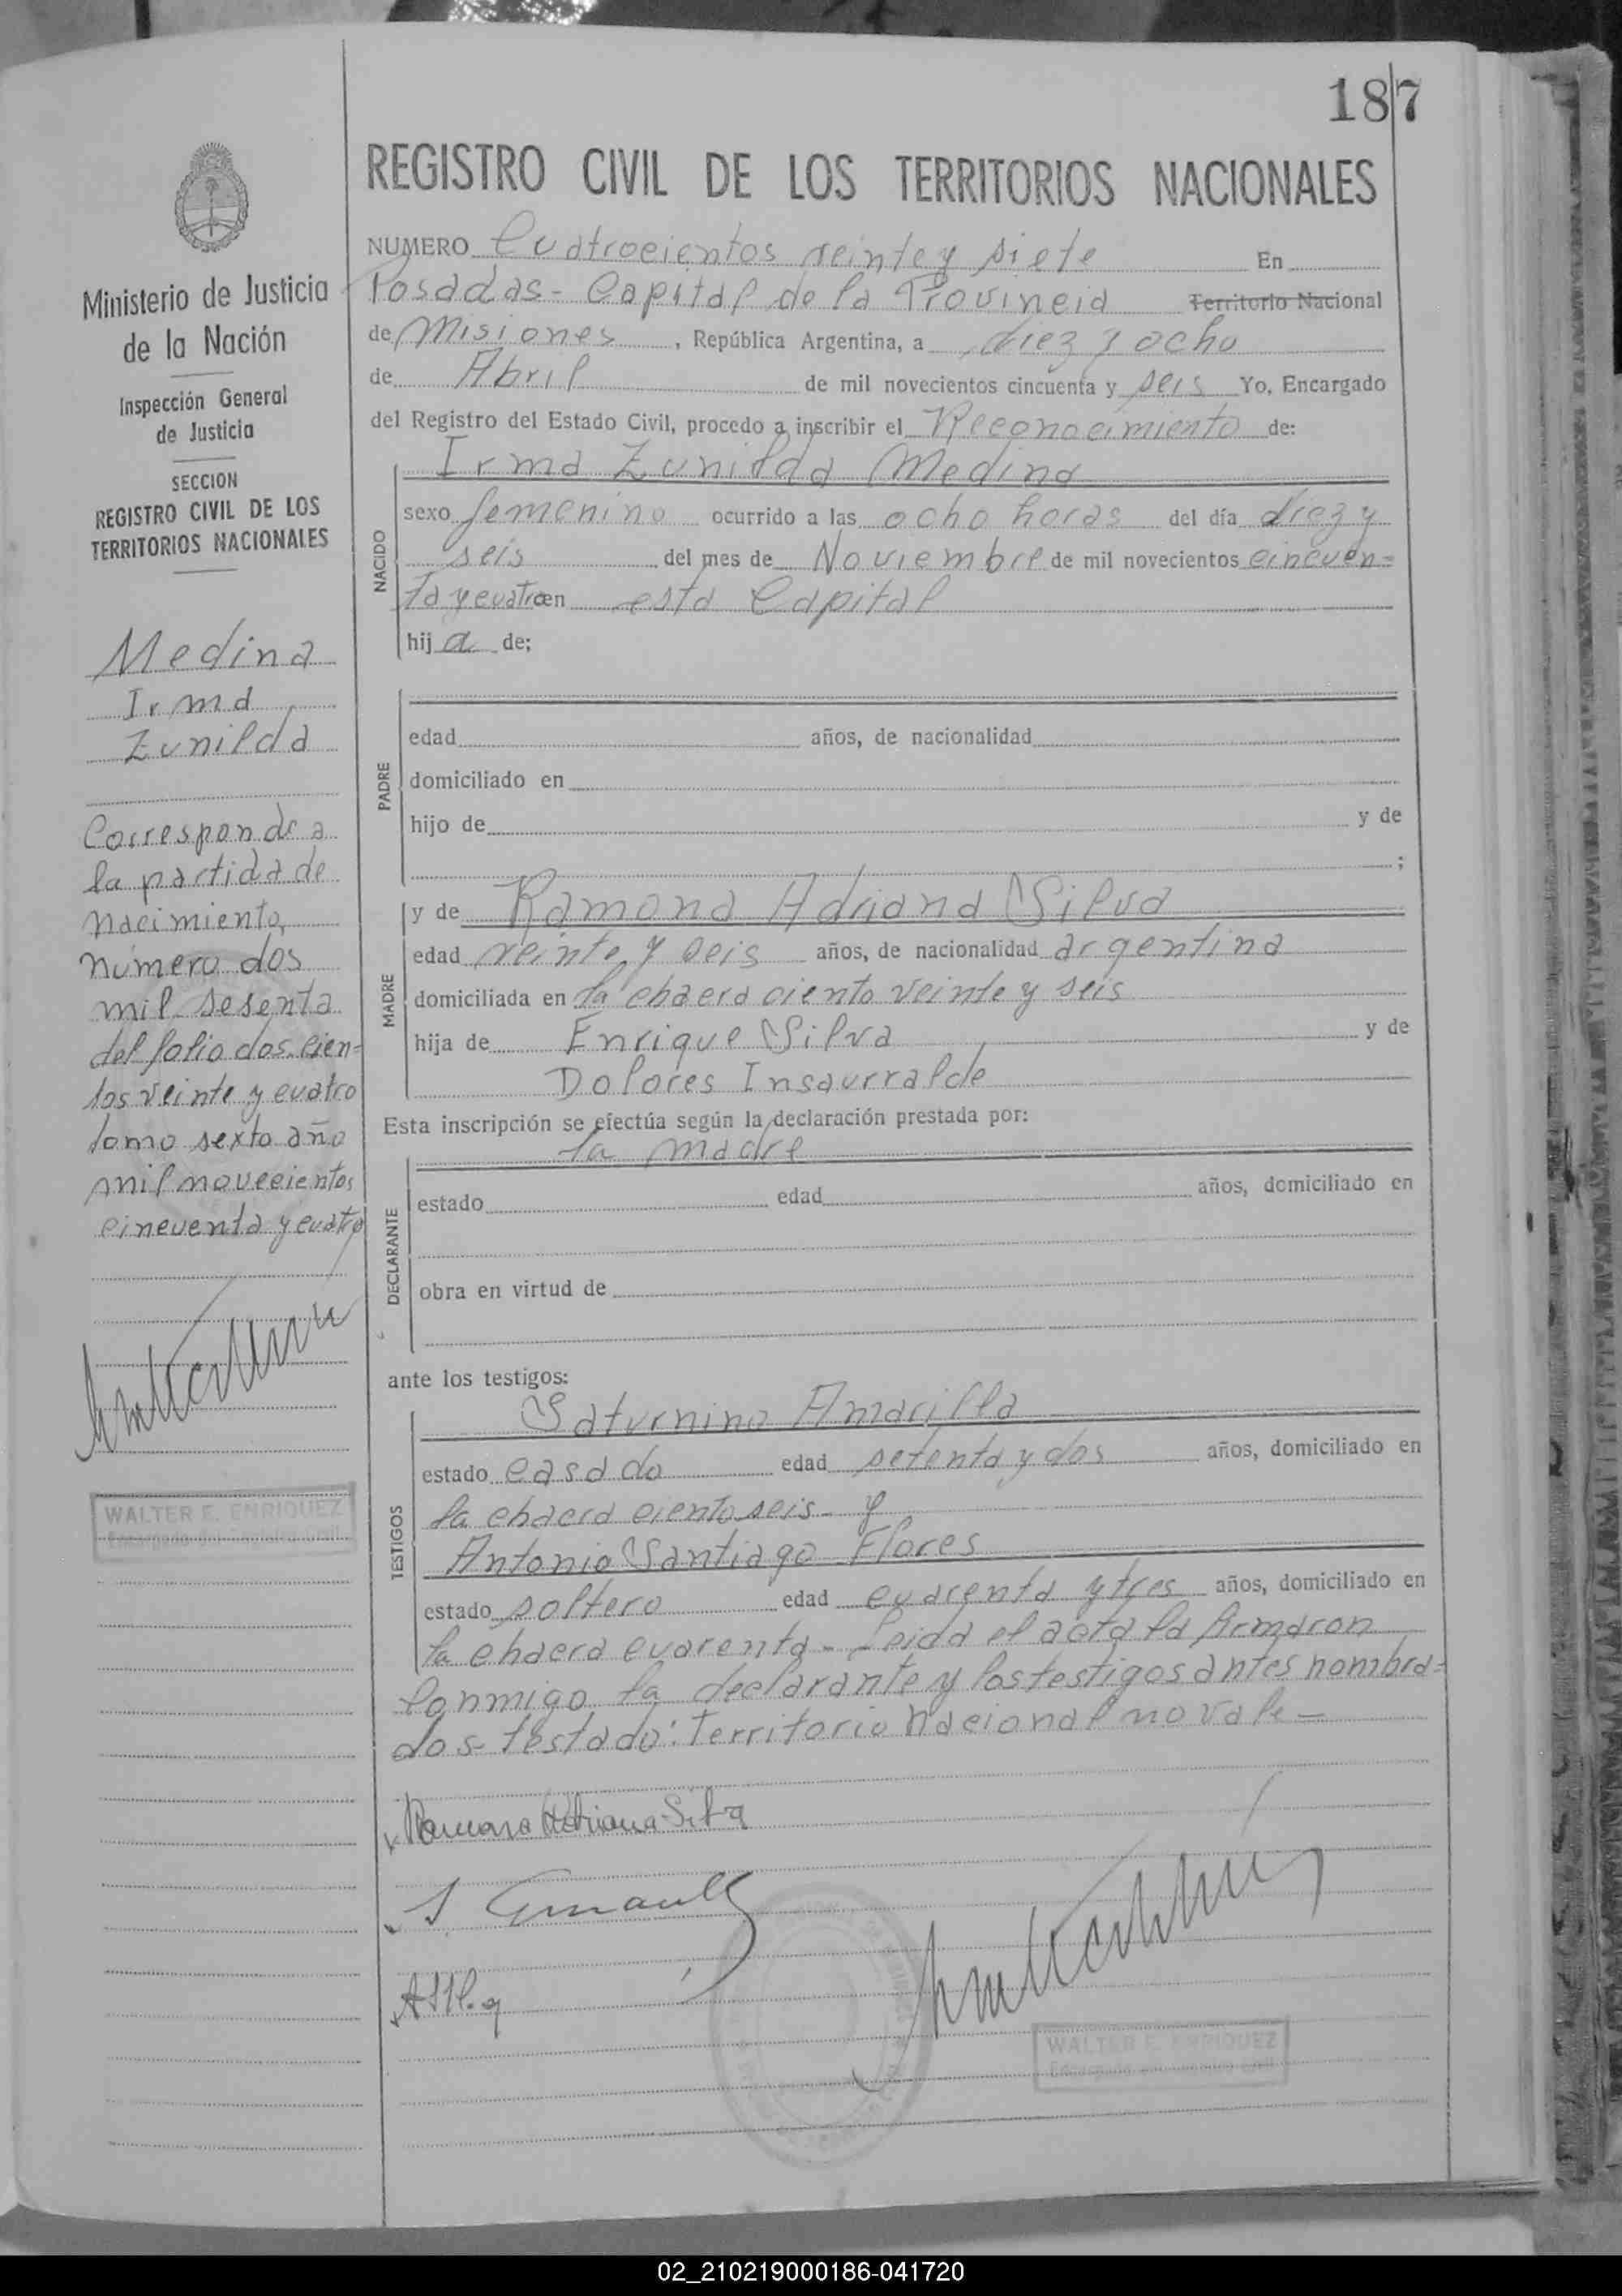 187
REGISTRO CIVIL DE LOS TERRITORIOS NACIONALES
Ministerio de Justicia
de la Nación
Inspección General
de Justicia
SECCION
REGISTRO CIVIL DE LOS
TERRITORIOS NACIONALES
Medina
Irma
Zunilda
Corresponde a
la partida de
nacimiento,
número dos
mil sesenta
del folio dos cien=
tos veinte y cuatro
tomo sexto año
mil novecientos
cincuenta y cuatro
WALTER E. ENRIQUEZ
Encargado del Registro Civil
NUMERO Cuatrocientos veinte y siete En
Posadas - Capital de la Provincia Territorio Nacional
de Misiones, República Argentina, a diez y ocho
de Abril de mil novecientos cincuenta y seis Yo, Encargado
del Registro del Estado Civil, procedo a inscribir el Reconocimiento de:
NACIDO
Irma Zunilda Medina
sexo femenino ocurrido a las ocho horas del día diez y
seis del mes de Noviembre de mil novecientos cincuen=
ta y cuatro en esta Capital
hij a de;
PADRE
edad años, de nacionalidad
domiciliado en
hijo de y de
;
MADRE
y de Ramona Adriana Silva
edad veinte y seis años, de nacionalidad argentina
domiciliada en la chacra ciento veinte y seis
hija de Enrique Silva y de
Dolores Insaurralde
Esta inscripción se efectúa según la declaración prestada por:
DECLARANTE
la madre
estado edad años, domiciliado en
obra en virtud de
ante los testigos:
TESTIGOS
Saturnino Amarilla
estado casado edad setenta y dos años, domiciliado en
la chacra ciento seis - y
Antonio Santiago Flores
estado soltero edad cuarenta y tres años, domiciliado en
la chacra cuarenta - Leida el acta la firmaron
conmigo la declarante y los testigos antes nombra=
dos - testado: Territorio Nacional no vale -
Ramona Adriana Silva
WALTER E. ENRIQUEZ
Encargado del Registro Civil
02_210219000186-041720